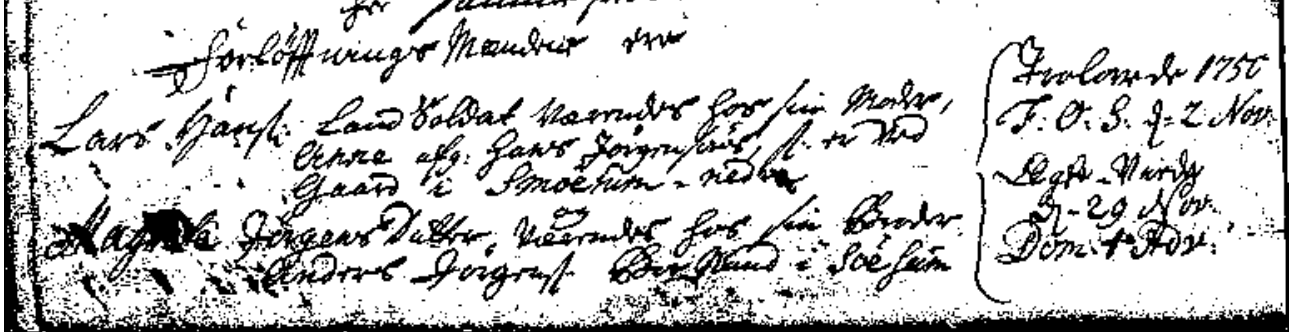 Forlöffwings Mændene ere
Lars Hans: Land Soldat værendes hos sin Moder,
Anne afg: Hans Jörgensens, st: er ved
Gaard i Smoêrum-nedre
Magrete Jörgens Datter, værendes hos sin Broder
Anders Jörgens: Boe Mand i Soêsum
Trolovede 1750
F. O. S. d. 2 Nov:
Egte-Viede
d. 29 Nov.
Dom. 1 Adv: